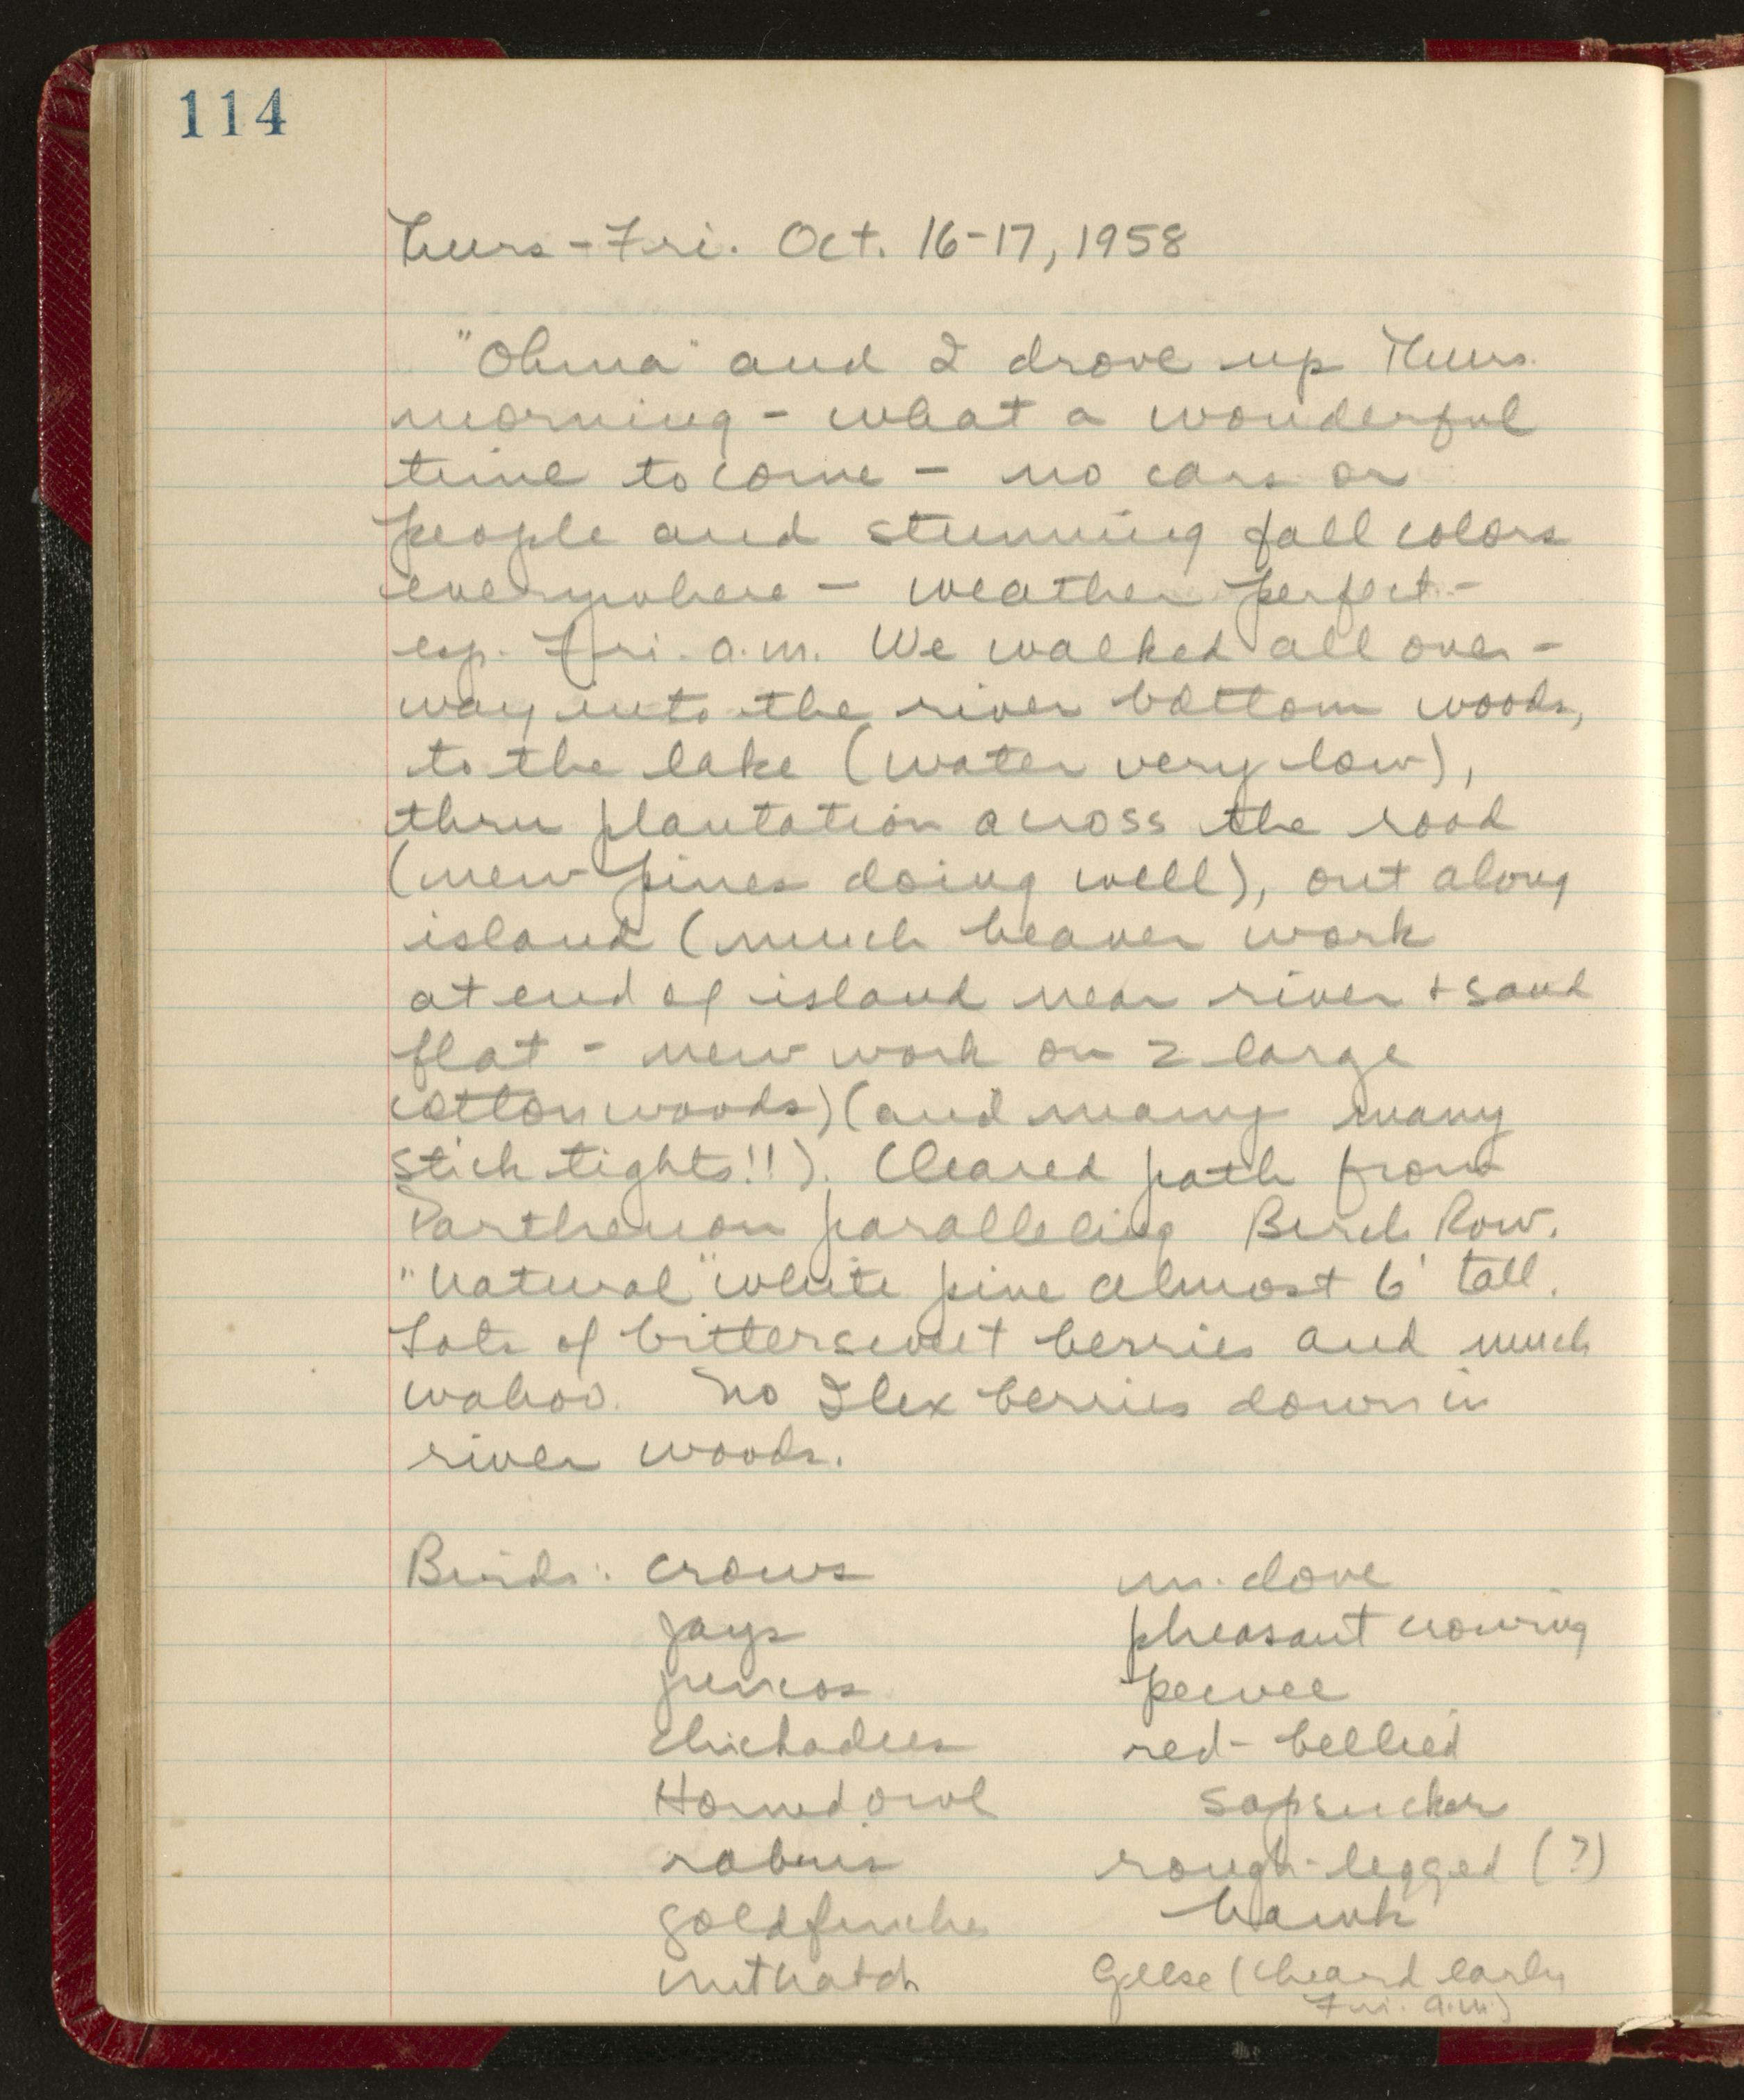 114
Thurs-Fri. Oct. 16-17, 1958
"Ohma" and I drove up Thurs.
morning - what a wonderful
time to come - no cars or
people and stunning fall colors
everywhere - weather perfect -
esp. Fri. a.m. We walked all over -
way into the river bottom woods,
to the lake (water very low),
thru plantation across the road
(new pines doing well), out along
island (much beaver work
at end of island near river + sand
flat - new work on 2 large
cottonwoods) (and many many
stick tights!!). Cleared path from
Parthenon paralleling Birch Row.
"Natural" white pine almost 6' tall.
Lots of bittersweet berries and much
wahoo. No Ilex berries down in
river woods.
Birds: crows m. dove
jays pheasant crowing
juncos peewee
chickadees red-bellied
Horned owl sapsucker
robins rough-legged (?)
goldfinches hawk
nuthatch Geese (heard early
Fri. a.m.)